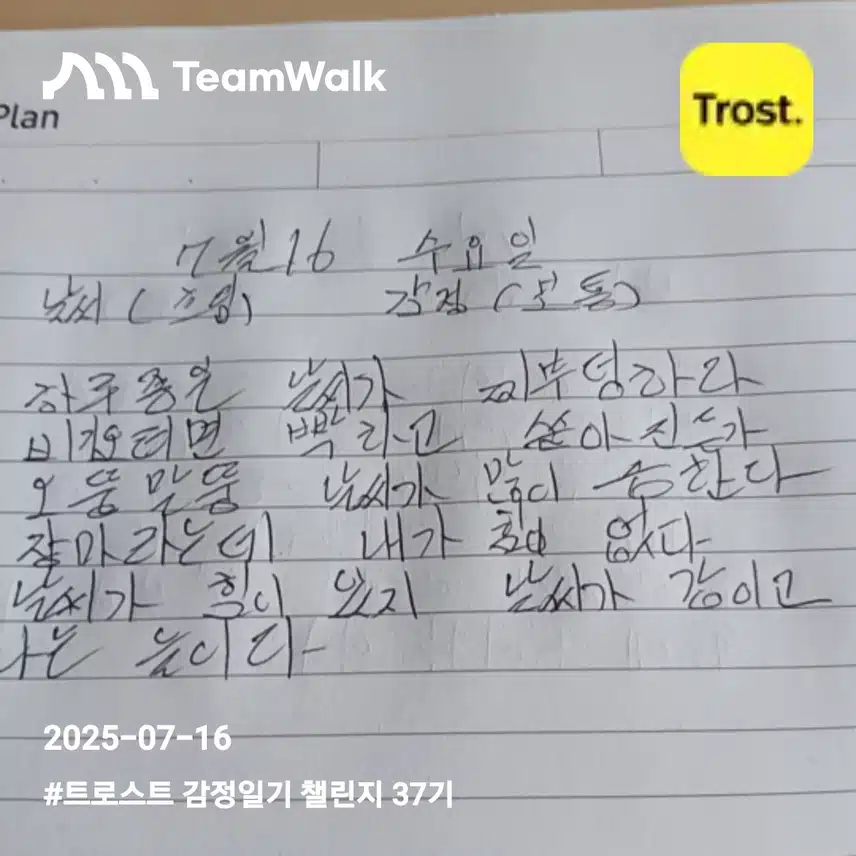 TeamWalk
Trost.
Plan
7월 16 수요일
날씨 (흐림) 감정 (보통)
하루종일 날씨가 찌부덩하라
비가오려면 쏟아지든가
오뚱말뚱 날씨가 많이 습한다
장마라는데 내가 없다
날씨가 힘이 있지 날씨가 갑이고
나는 을이다
2025-07-16
#트로스트 감정일기 챌린지 37기